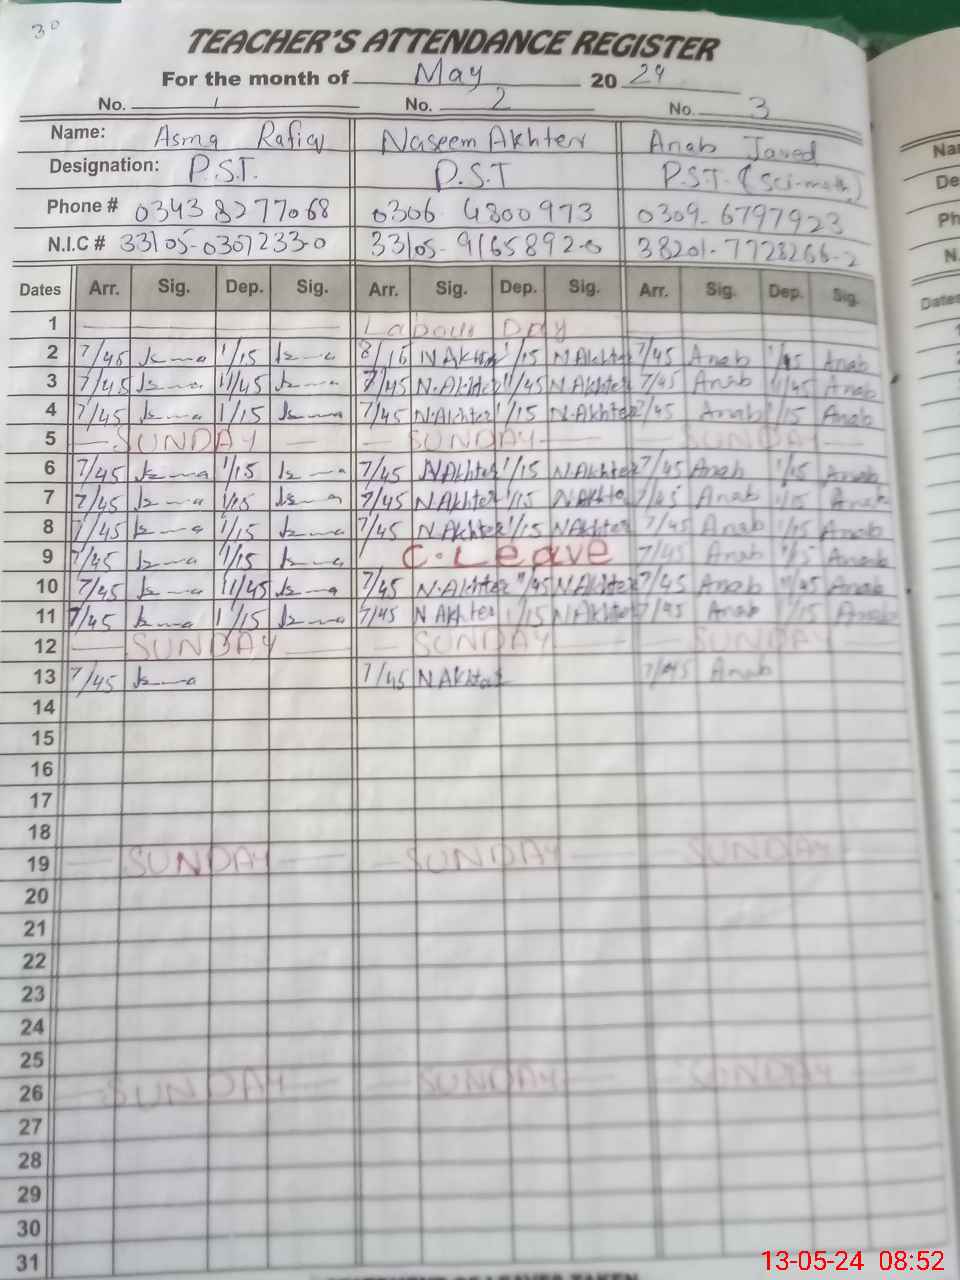 30
TEACHER'S ATTENDANCE REGISTER
For the month of May 2024
No. 1 No. 2 No. 3
Name: Asma Rafiq Naseem Akhter Anab Javed
Designation: P.S.T. P.S.T P.S.T. (Sci-math)
Phone # 0343 8277068 0306 4800973 0309-6797923
N.I.C # 33105-0307233-0 33105-9165892-0 38201-7728266-2
Dates Arr. Sig. Dep. Sig. Arr. Sig. Dep. Sig. Arr. Sig. Dep. Sig.
1 Labour DAY
2 7/45 1/15 8/15 NAkhter 1/15 NAkhter 7/45 Anab 1/15 Anab
3 7/45 11/45 7/45 N.Akhter 11/45 NAkhter 7/45 Anab 11/45 Anab
4 7/45 1/15 7/45 N.Akhter 1/15 N.Akhter 7/45 Anab 1/15 Anab
5 SUNDAY SUNDAY SUNDAY
6 7/45 1/15 7/45 NAkhter 1/15 NAkhter 7/45 Anab 1/15 Anab
7 7/45 1/15 7/45 NAkhter 1/15 NAkhte 7/45 Anab 1/15 Anab
8 7/45 1/15 7/45 NAkhter 1/15 NAkhter 7/45 Anab 1/15 Anab
9 7/45 1/15 C.Leave 7/45 Anab 1/15 Anab
10 7/45 11/45 7/45 N.Akhter 11/45 NAkhter 7/45 Anab 11/45 Anab
11 7/45 1/15 7/45 NAkhter 1/15 NAkhter 7/45 Anab 1/15 Anab
12 SUNDAY SUNDAY SUNDAY
13 7/45 7/45 NAkhter 7/45 Anab
14
15
16
17
18
19 SUNDAY SUNDAY SUNDAY
20
21
22
23
24
25
26 SUNDAY SUNDAY SUNDAY
27
28
29
30
31
Na
De
Ph
N.
Dates
13-05-24 08:52